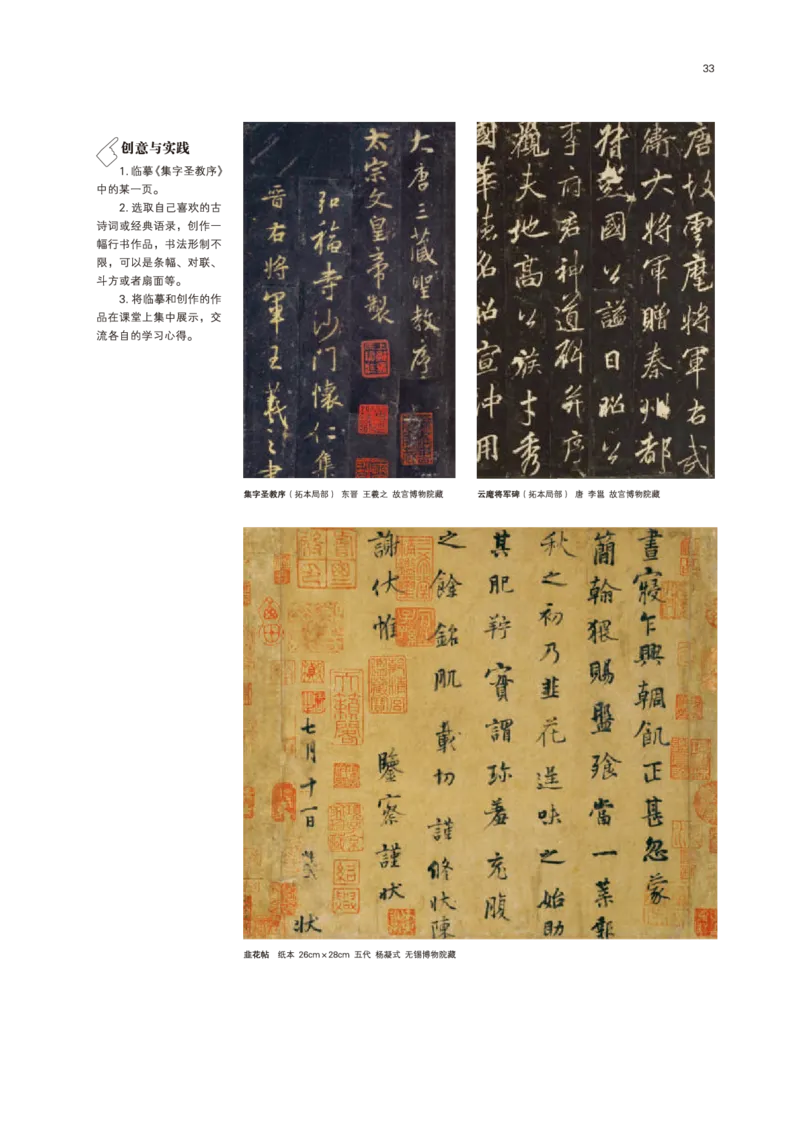 33
创意与实践
1. 临摹《集字圣教序》
中的某一页。
2. 选取自己喜欢的古
诗词或经典语录，创作一
幅行书作品，书法形制不
限，可以是条幅、对联、
斗方或者扇面等。
3. 将临摹和创作的作
品在课堂上集中展示，交
流各自的学习心得。
大唐三藏聖教序
太宗文皇帝製
弘福寺沙门懷仁集
晉右將軍王羲之書
集字圣教序（拓本局部） 东晋 王羲之 故宫博物院藏
唐故雲麾將軍右武
衛大將軍贈秦州都
督彭國公謚曰昭公
李府君神道碑并序
觀夫地高公族才秀
國華德名昭宣沖用
云麾将军碑（拓本局部） 唐 李邕 故宫博物院藏
晝寢乍興輖飢正甚忽蒙
簡翰猥賜盤飧當一葉報
秋之初乃韭花逞味之始助
其肥羜實謂珍羞充腹
之餘銘肌載切謹修狀陳
謝伏惟鑒察謹狀
七月十一日狀
韭花帖 纸本 26cm×28cm 五代 杨凝式 无锡博物院藏